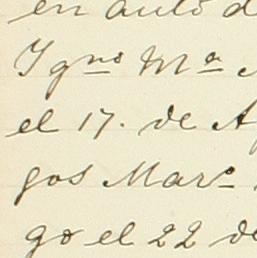 en auto d
Ygno Ma
el 17. de A
gos Maro
go el 22 de